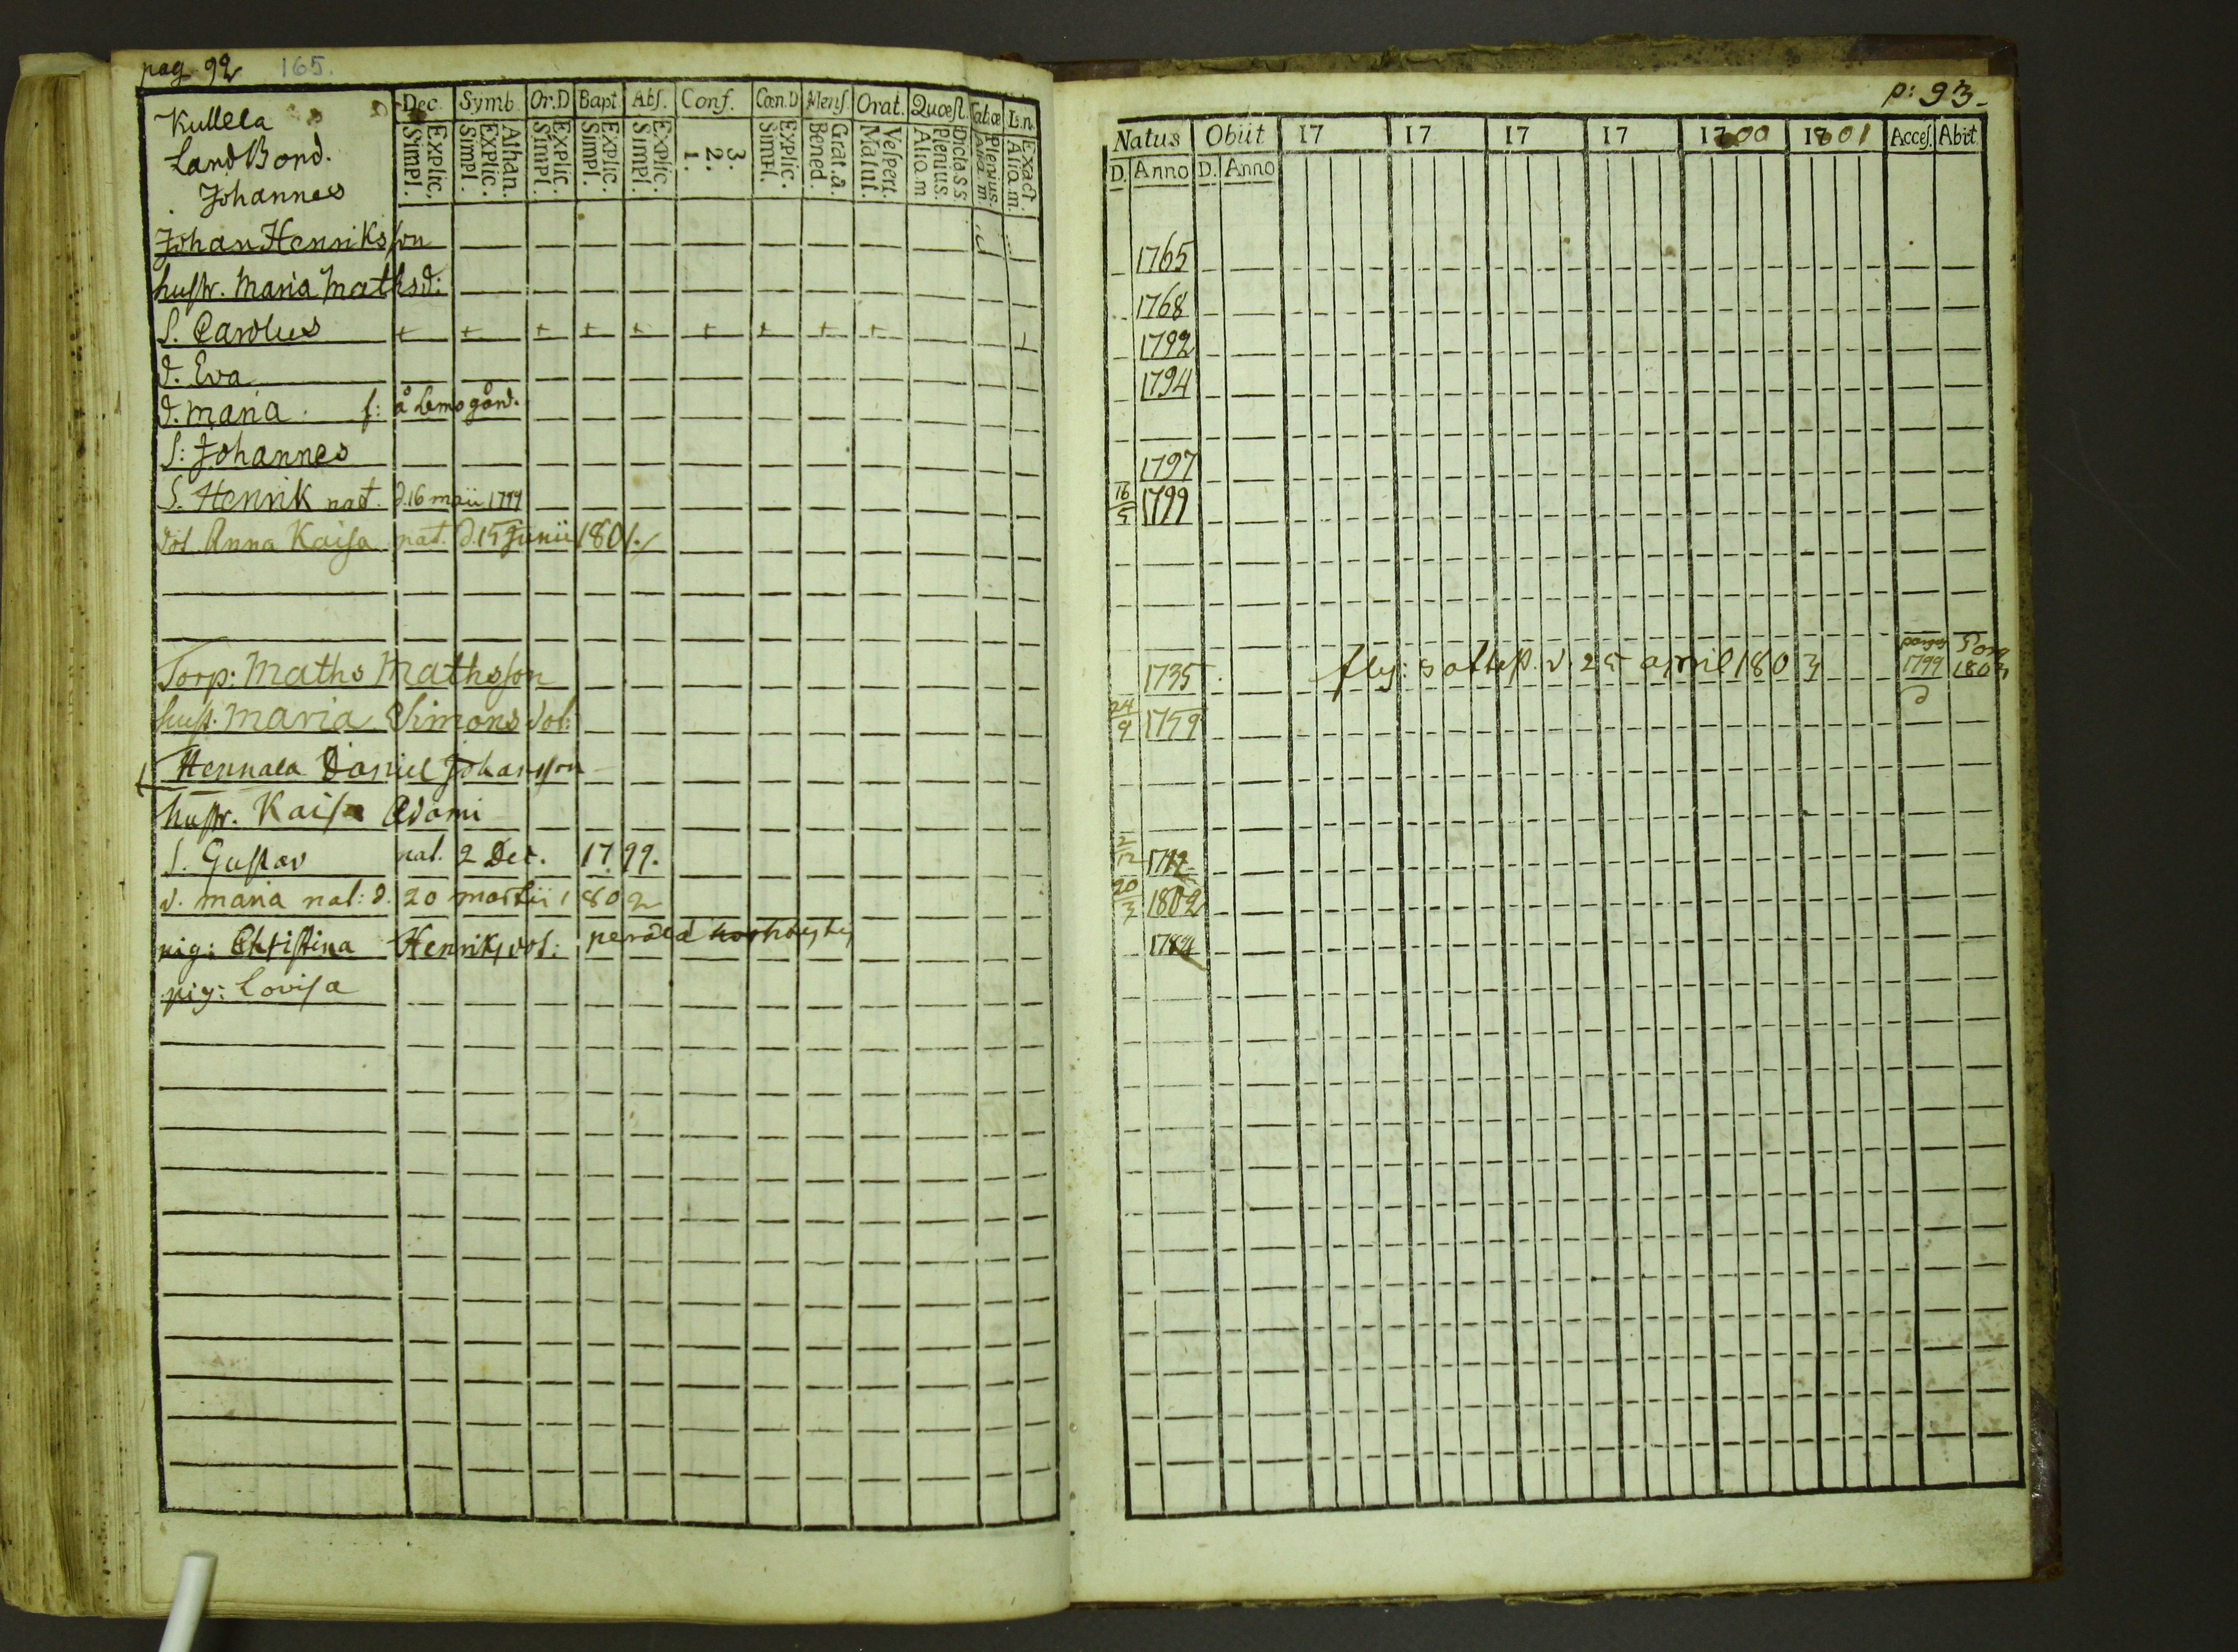 pag 92 165.
Kullela
LandBond.
Johannes
Dec. Symb. Or.D Bapt. Abſ. Conf. Cœn.D Menſ. Orat. Quœſt. Tabœ L.n.
Simpl. Explic. Simpl. Explic. Athan. Simpl. Explic. Simpl. Explic. Simpl. Explic. 1. 2. 3. Simpl. Explic. Bened. Grat.a. Matut. Veſpert. Alio.m Plenius. Dicta S S Alio.m Plenius. Alio.m. Exact.
Johan Henriksſon
huſtr. Maria Mathsd:
S. Carolus + + + + + + + + +
d. Eva
d. Maria f: å Lemo gård.
S: Johannes
S. Henrik nat. d.16 maii 1799
dot. Anna Kaiſa nat. d.15 Junii 1801.
Torp: Maths Mathsſon
huſt. Maria Simons dot:
Hennala Daniel Johansſon
huſtr. Kaiſa Adami
S. Guſtav nat. 2 Dec. 1799.
d. maria nat: d. 20 martii 1802
pig: Chriſtina Henriksdot:
pig: Loviſa
p: 93.
Natus Obiit 17 17 17 17 1800 1801 Acceſ. Abiit
D. Anno D. Anno
1765
1768
1792
1794
1797
16/5 1799
1735 d. 25 april 1803 1799 1803
24/9 1759
2/12
20/3 1802
1784